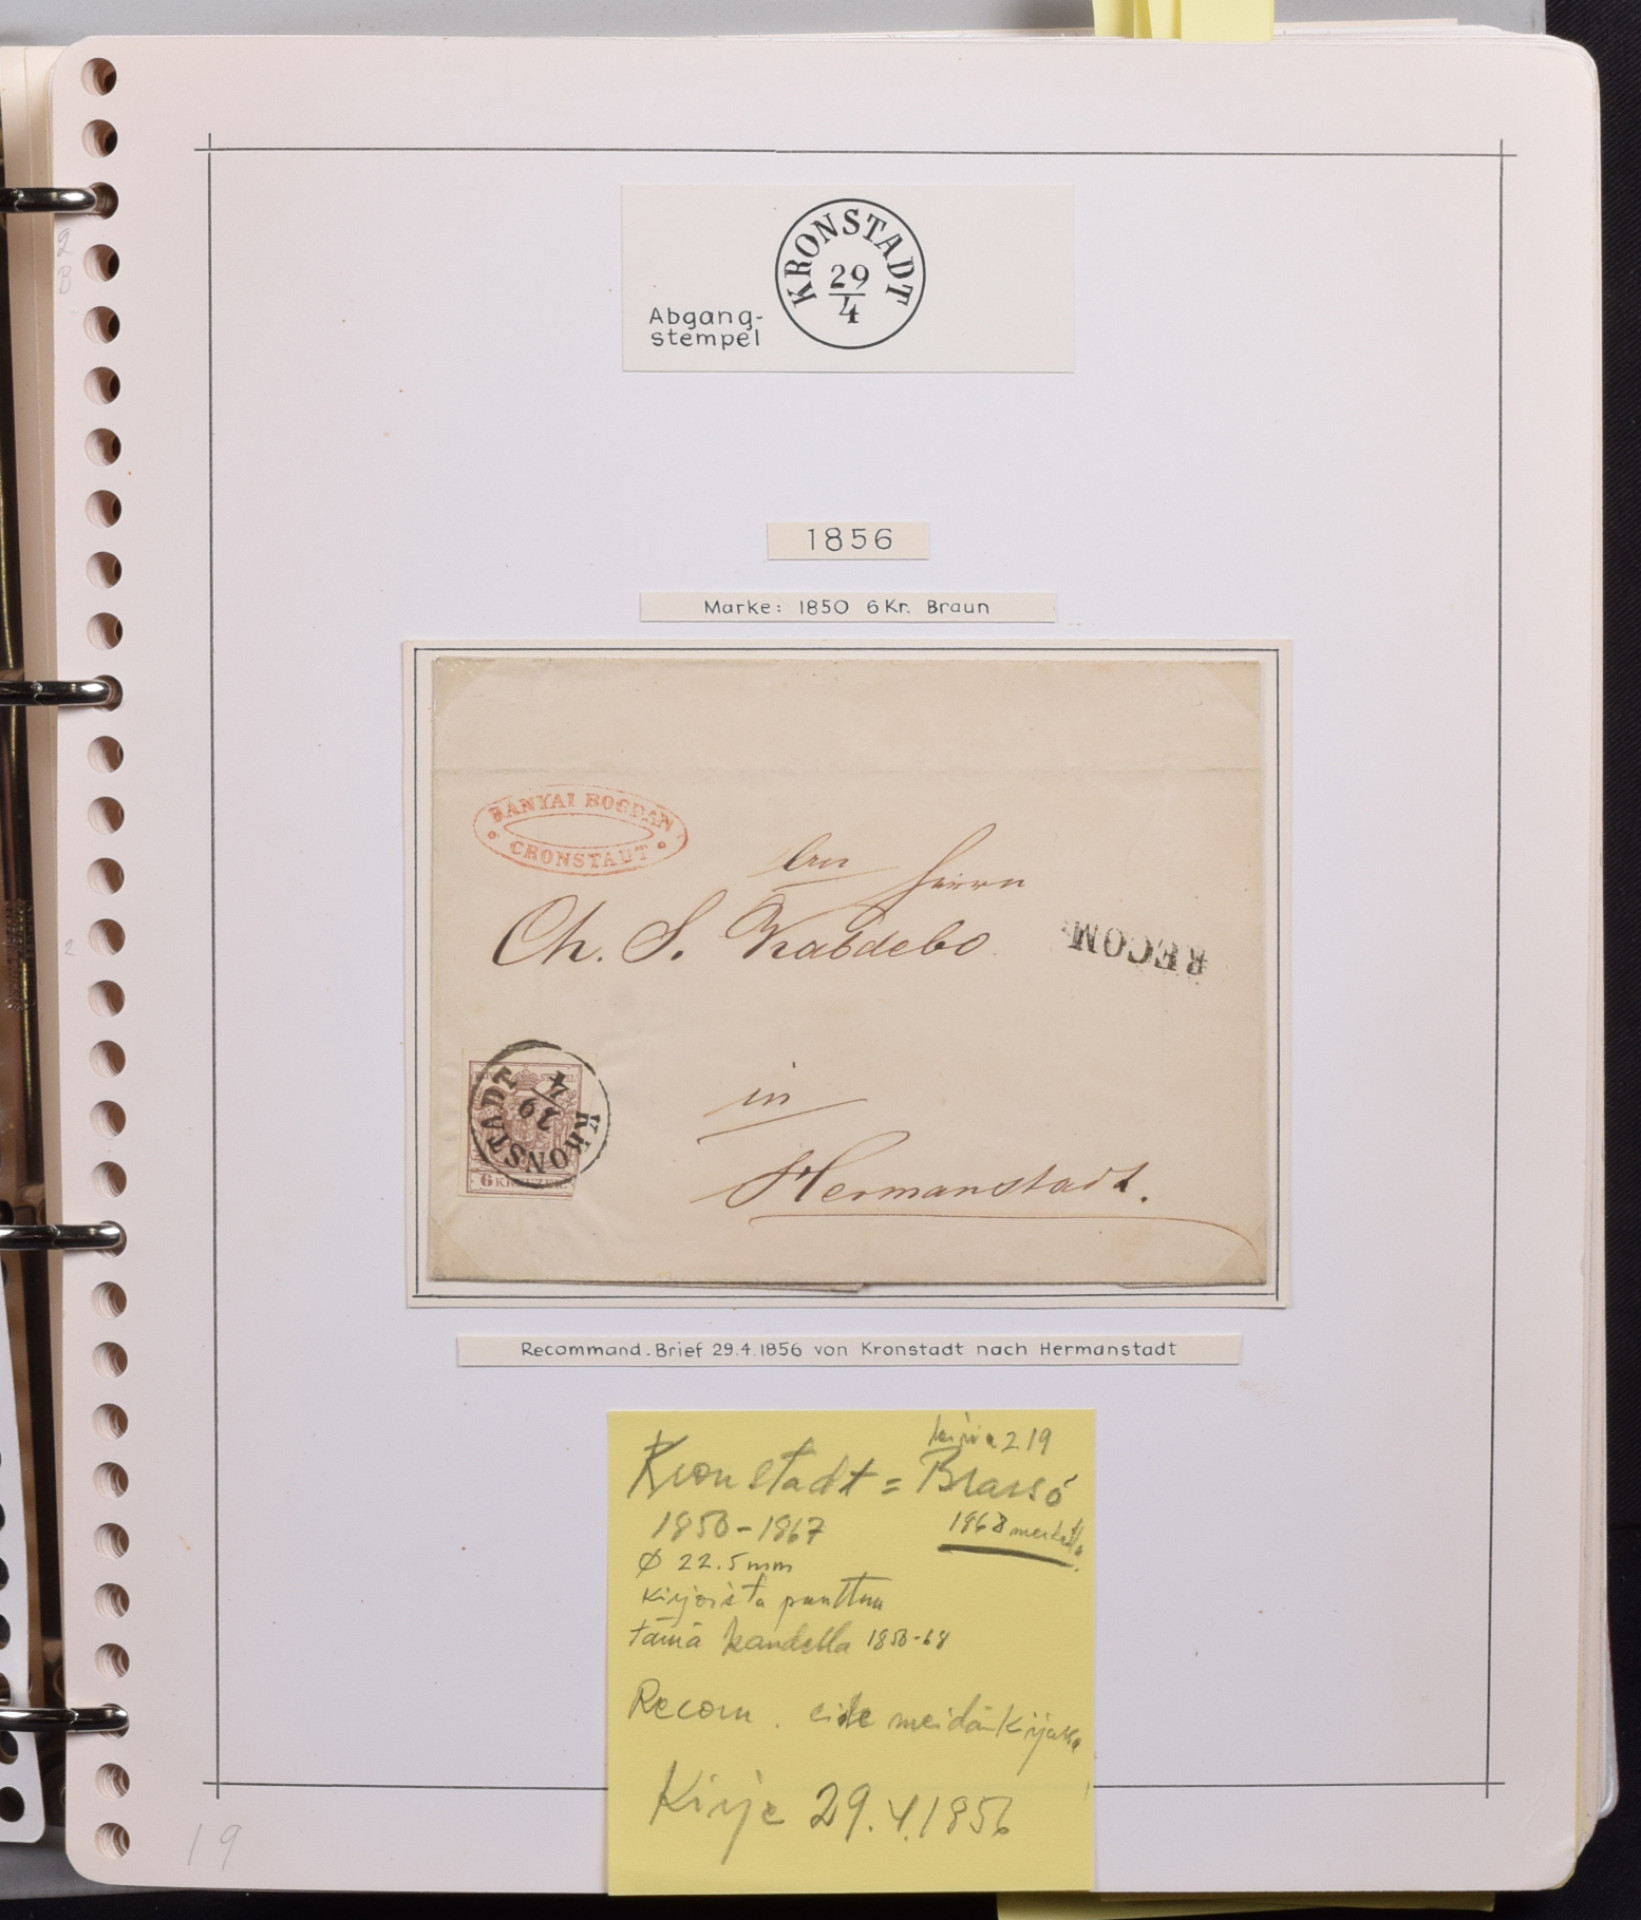 KRONSTADT
29
4
Abgang-
stempel
1856
Marke: 1850 6 Kr. Braun
BANYAI BOGDAN
CRONSTADT
Herrn
Ch. S. Kabdebo
RECOM.
KRONSTADT
29
4
6 KREUZER
in
Hermanstadt.
Recommand.-Brief 29.4.1856 von Kronstadt nach Hermanstadt
219
Kronstadt = Brassó
1850-1867
Ø 22.5 mm
Kirjoista puuttuu
tämä kaudella 1850-68
Recom. meidän
Kirje 29.4.1856
19